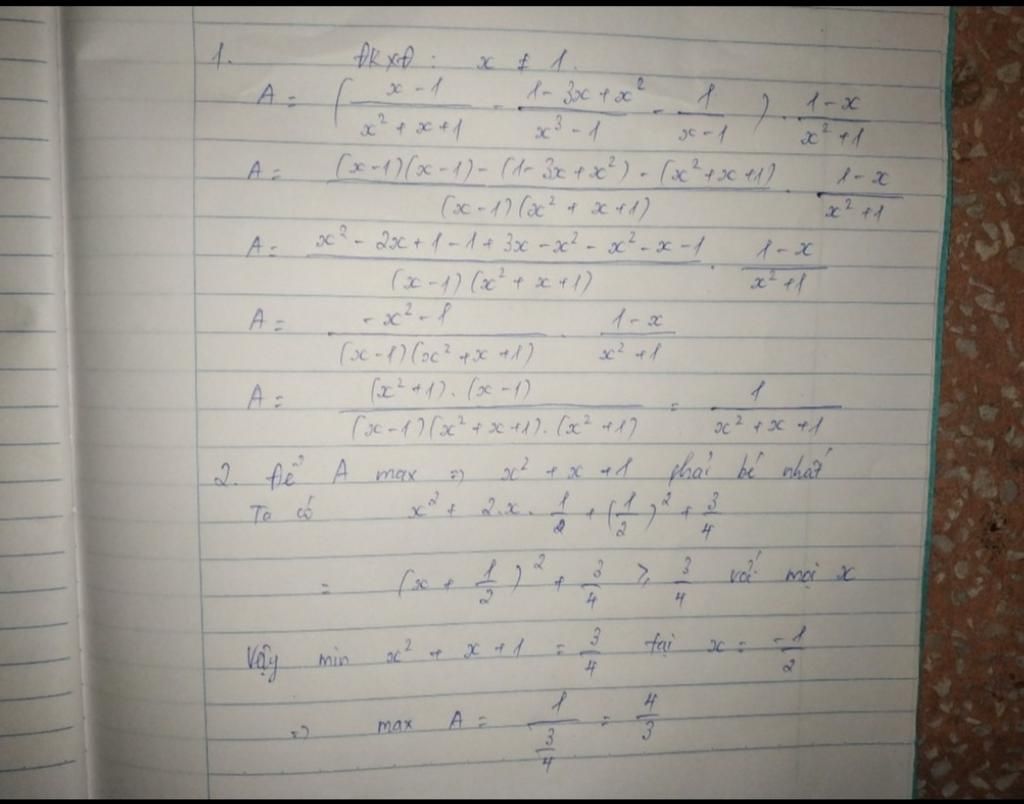 1. ĐKXĐ : x ≠ 1.
A = ( \frac{x-1}{x^2+x+1} - \frac{1-3x+x^2}{x^3-1} - \frac{1}{x-1} ) . \frac{1-x}{x^2+1}
A = \frac{(x-1)(x-1)-(1-3x+x^2)-(x^2+x+1)}{(x-1)(x^2+x+1)} . \frac{1-x}{x^2+1}
A = \frac{x^2-2x+1-1+3x-x^2-x^2-x-1}{(x-1)(x^2+x+1)} . \frac{1-x}{x^2+1}
A = \frac{-x^2-1}{(x-1)(x^2+x+1)} . \frac{1-x}{x^2+1}
A = \frac{(x^2+1).(x-1)}{(x-1)(x^2+x+1).(x^2+1)} = \frac{1}{x^2+x+1}
2. Để A max => x^2 + x + 1 phải bé nhất
Ta có x^2 + 2.x.\frac{1}{2} + (\frac{1}{2})^2 + \frac{3}{4}
= (x + \frac{1}{2})^2 + \frac{3}{4} ≥ \frac{3}{4} với mọi x
Vậy min x^2 + x + 1 = \frac{3}{4} tại x = \frac{-1}{2}
=> max A = \frac{1}{\frac{3}{4}} = \frac{4}{3}